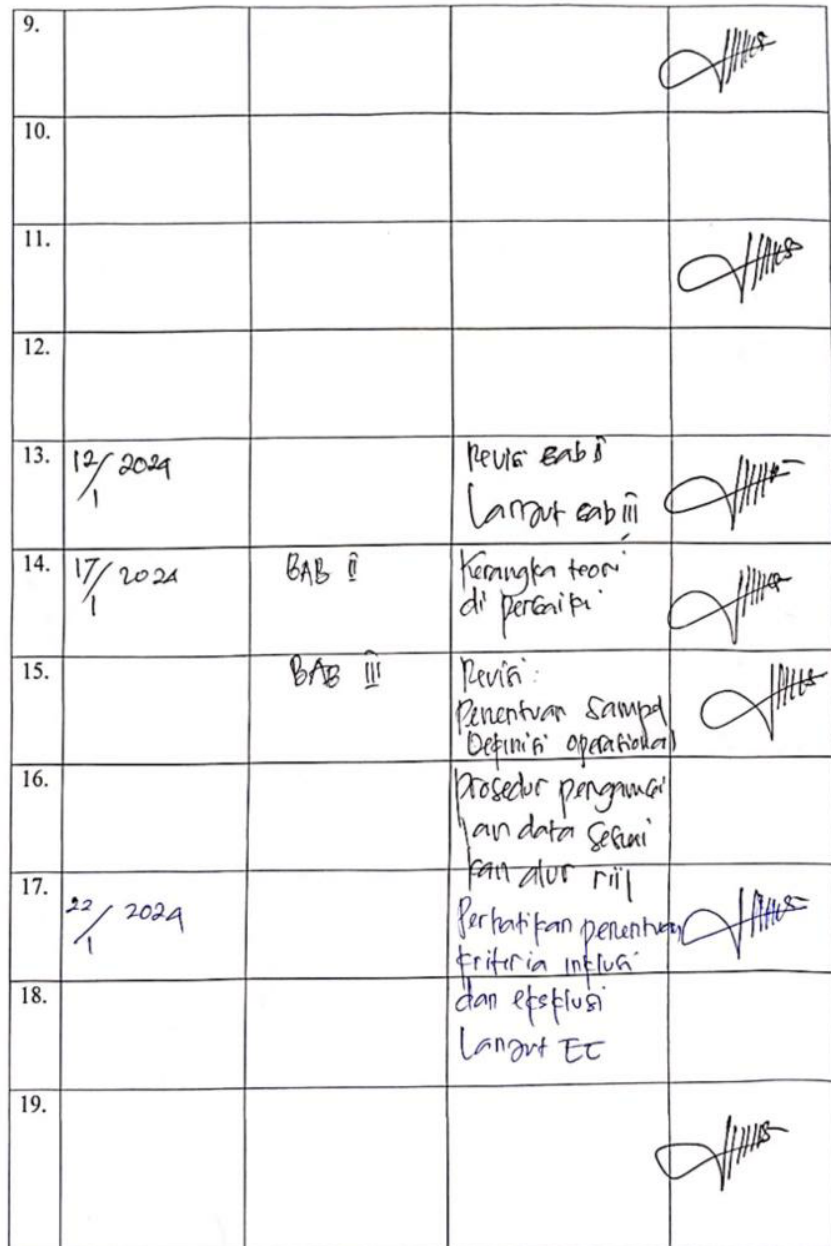 9.
10.
11.
12.
13. 12/1 2024 Revisi Bab I
Lanjut Bab III
14. 17/1 2024 BAB II Kerangka teori
di perbaiki
15. BAB III Revisi:
Penentuan Sampel
Definisi operasional
16. Prosedur pengambil
an data sesuai
kan alur riil
17. 22/1 2024 Perhatikan penentuan
kriteria inklusi
18. dan eksklusi
Lanjut EC
19.